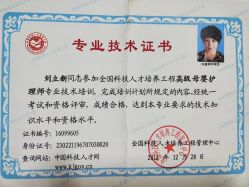 专业技术证书
刘立新同志参加全国科技人才培养工程高级母婴护
理师专业技术培训，完成培训计划所规定的内容,经统
一考试和资格评审，成绩合格，达到本专业要求的技术知
识水平和资格水平。
证书编号：16099605
身份证号：230221196707030020
查询网站：中国科技人才网
全国科技人才培养工程管理中心
2012年12月28日